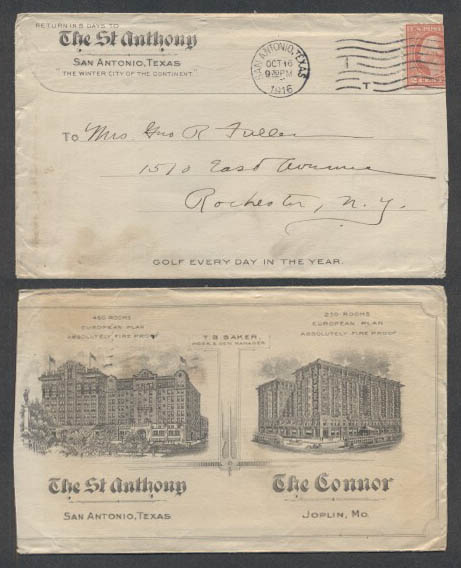 RETURN IN 5 DAYS TO
The St Anthony
SAN ANTONIO, TEXAS
"THE WINTER CITY OF THE CONTINENT"
SAN ANTONIO, TEXAS
OCT 16
9 PM
1916
T
2 CENTS 2
To Mrs. Geo R. Fuller
1510 East Avenue
Rochester, N.Y.
GOLF EVERY DAY IN THE YEAR.
450 ROOMS
EUROPEAN PLAN
ABSOLUTELY FIRE PROOF
T. B. BAKER,
PRES. & GEN. MANAGER
250 ROOMS
EUROPEAN PLAN
ABSOLUTELY FIRE PROOF
The St Anthony
SAN ANTONIO, TEXAS
The Connor
JOPLIN, MO.